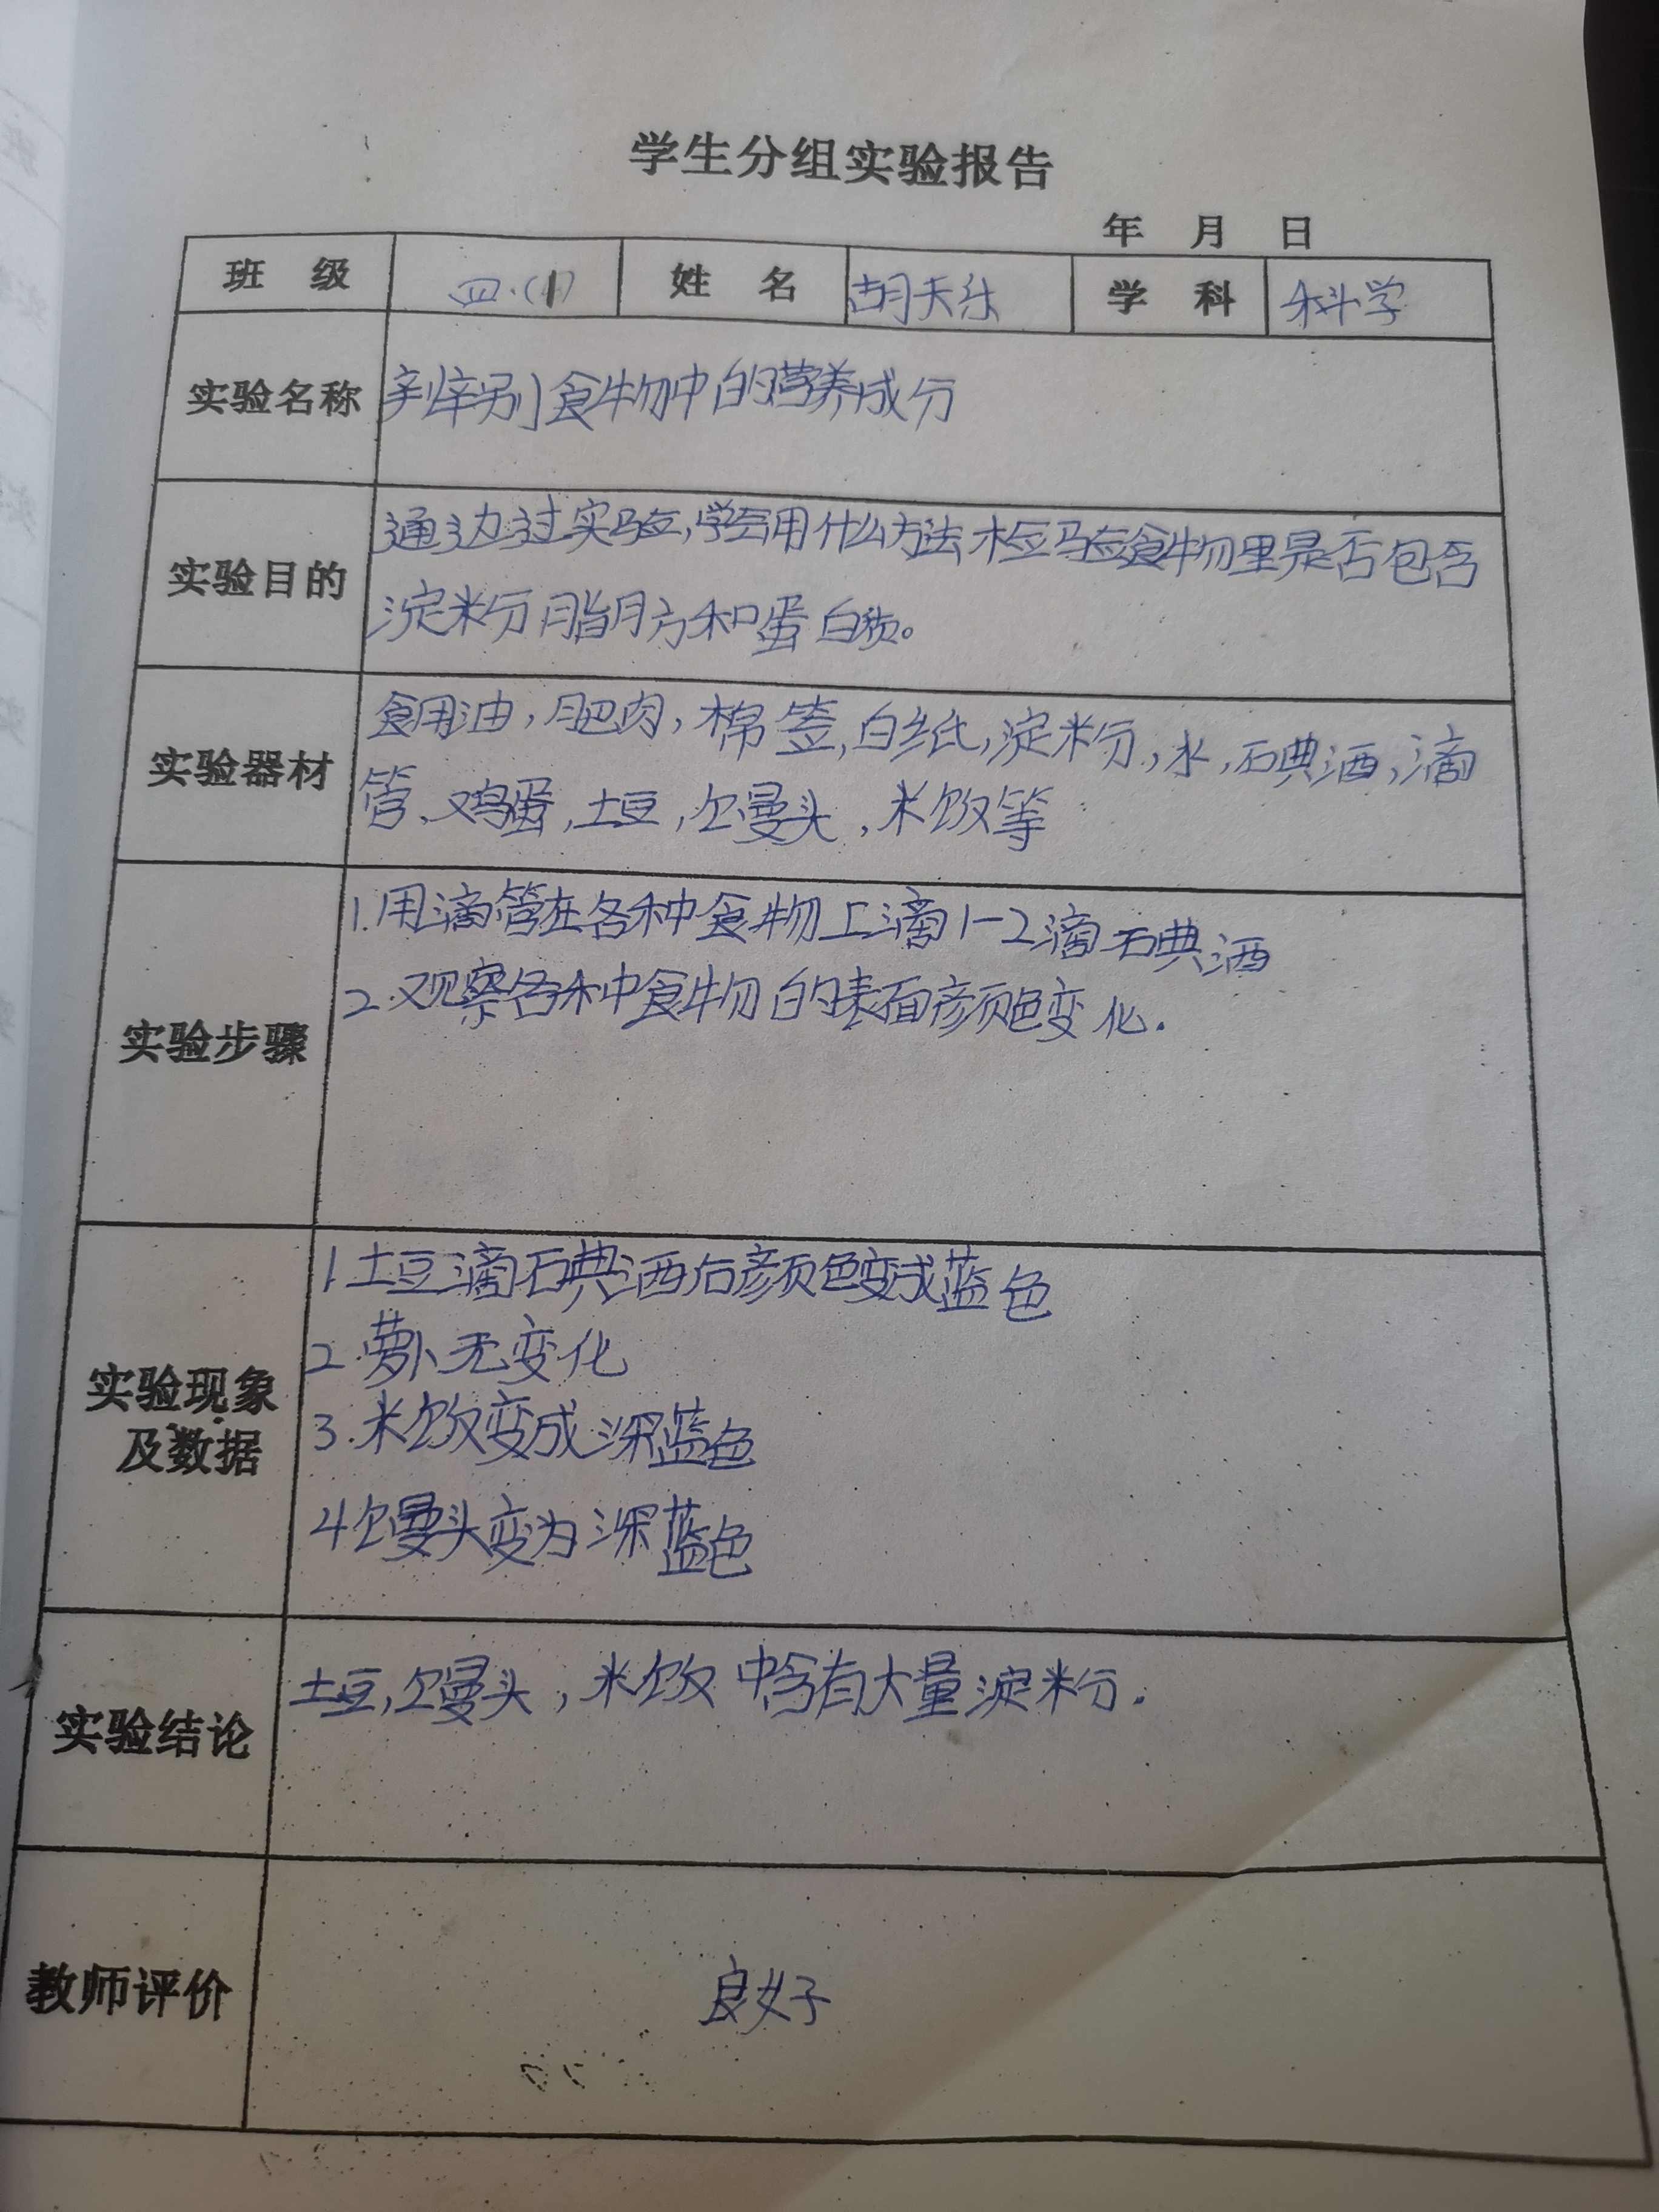 学生分组实验报告
年 月 日
班 级 四.(1) 姓 名 胡天乐 学 科 科学
实验名称 辨别食物中的营养成分
实验目的 通过实验,学会用什么方法检验食物里是否包含
淀粉 脂肪和蛋白质。
实验器材 食用油,肥肉,棉签,白纸,淀粉,水,碘酒,滴
管、鸡蛋,土豆,馒头,米饭等
实验步骤 1.用滴管在各种食物上滴1-2滴碘酒
2.观察各种食物的表面颜色变化.
实验现象
及数据
1土豆滴碘酒后颜色变成蓝色
2.萝卜无变化
3.米饭变成深蓝色
4馒头变为深蓝色
实验结论 土豆,馒头,米饭中含有大量淀粉.
教师评价 良好